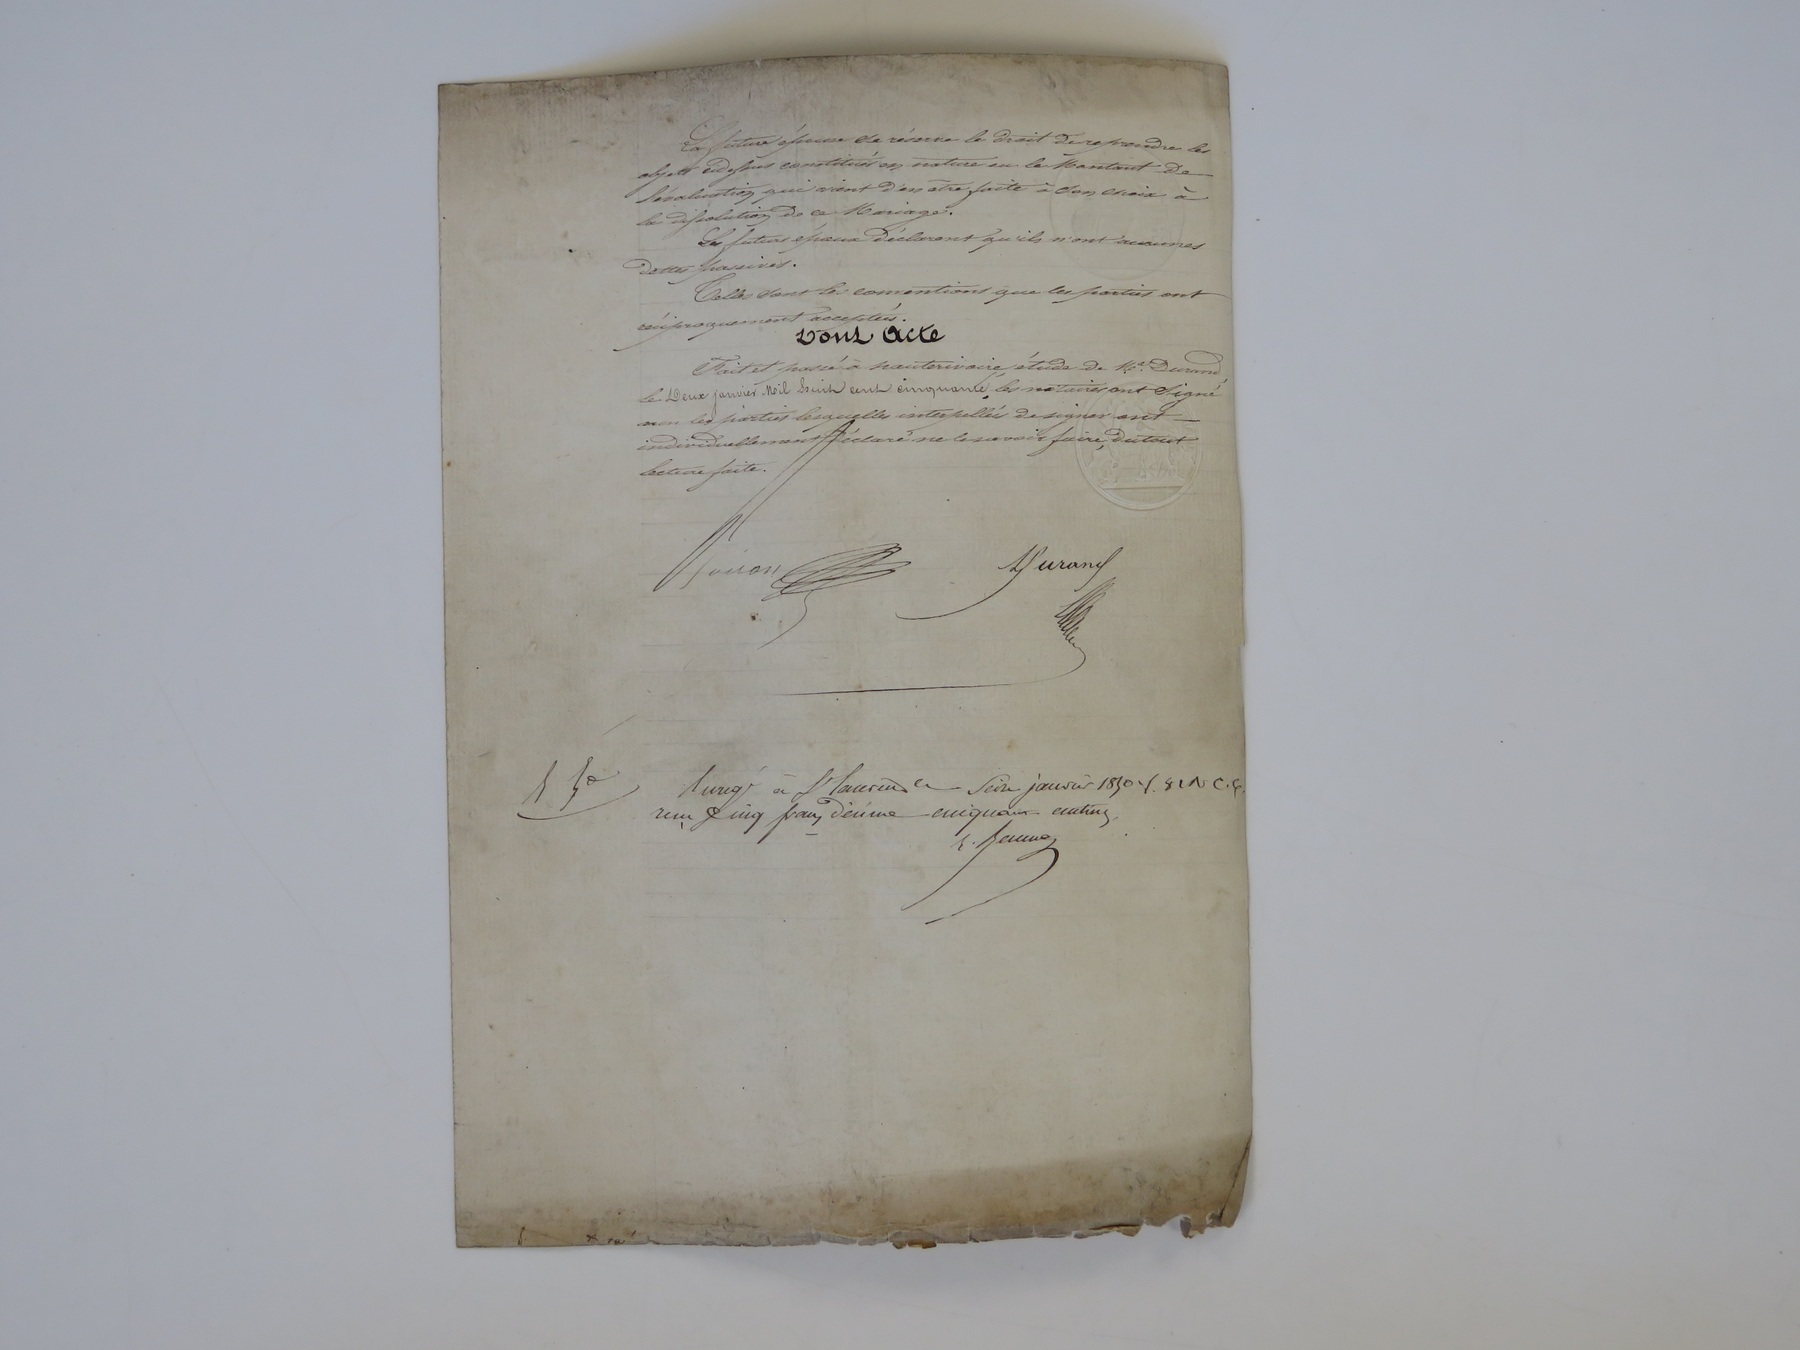 La future épouse se réserve le droit de reprendre les
objets cidessus constitués en nature ou le Montant de
l'évaluation qui vient d'en être faite à son choix à
la dissolution de ce Mariage.
Les futurs époux déclarent qu'ils n'ont aucunes
dettes passives.
Telles sont les conventions que les parties ont
réciproquement acceptées.
Dont Acte
Fait et passé à hauterivoire, étude de Me. Durand,
le Deux janvier Mil huit cent cinquante, les notaires ont Signé
non les parties lesquelles interpellées de signer ont
individuellement déclaré ne le savoir faire, du tout
lecture faite.
Durand
à St Laurent le Seize janvier 1850
cinq francs décime cinquante centimes